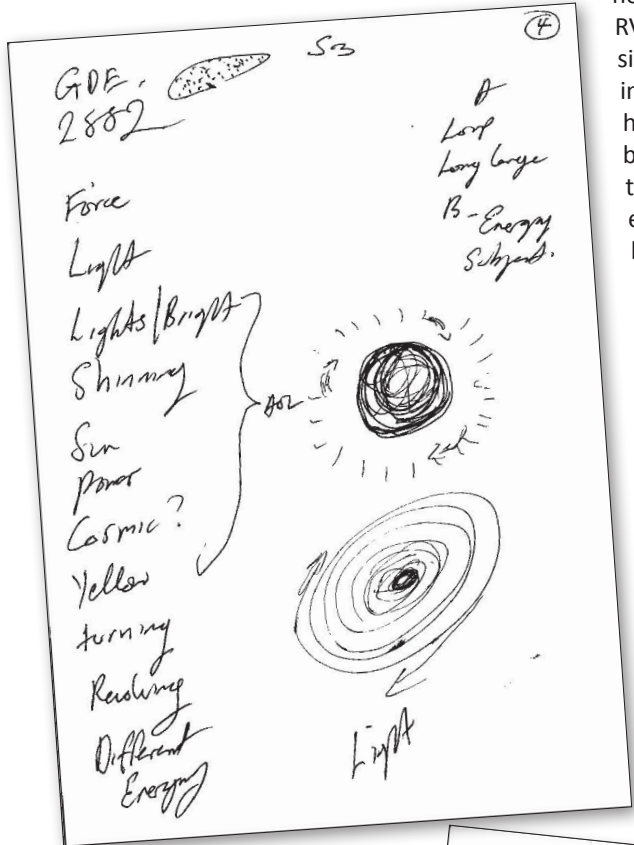 ④
S3
GDE.
2882
A
Loop
Long large
B - Energy
Subject.
Force
Light
Lights/Bright
Shinning
AOL
Sun
Power
Cosmic?
Yellow
turning
Revolving
Different
Energy
Light
RV